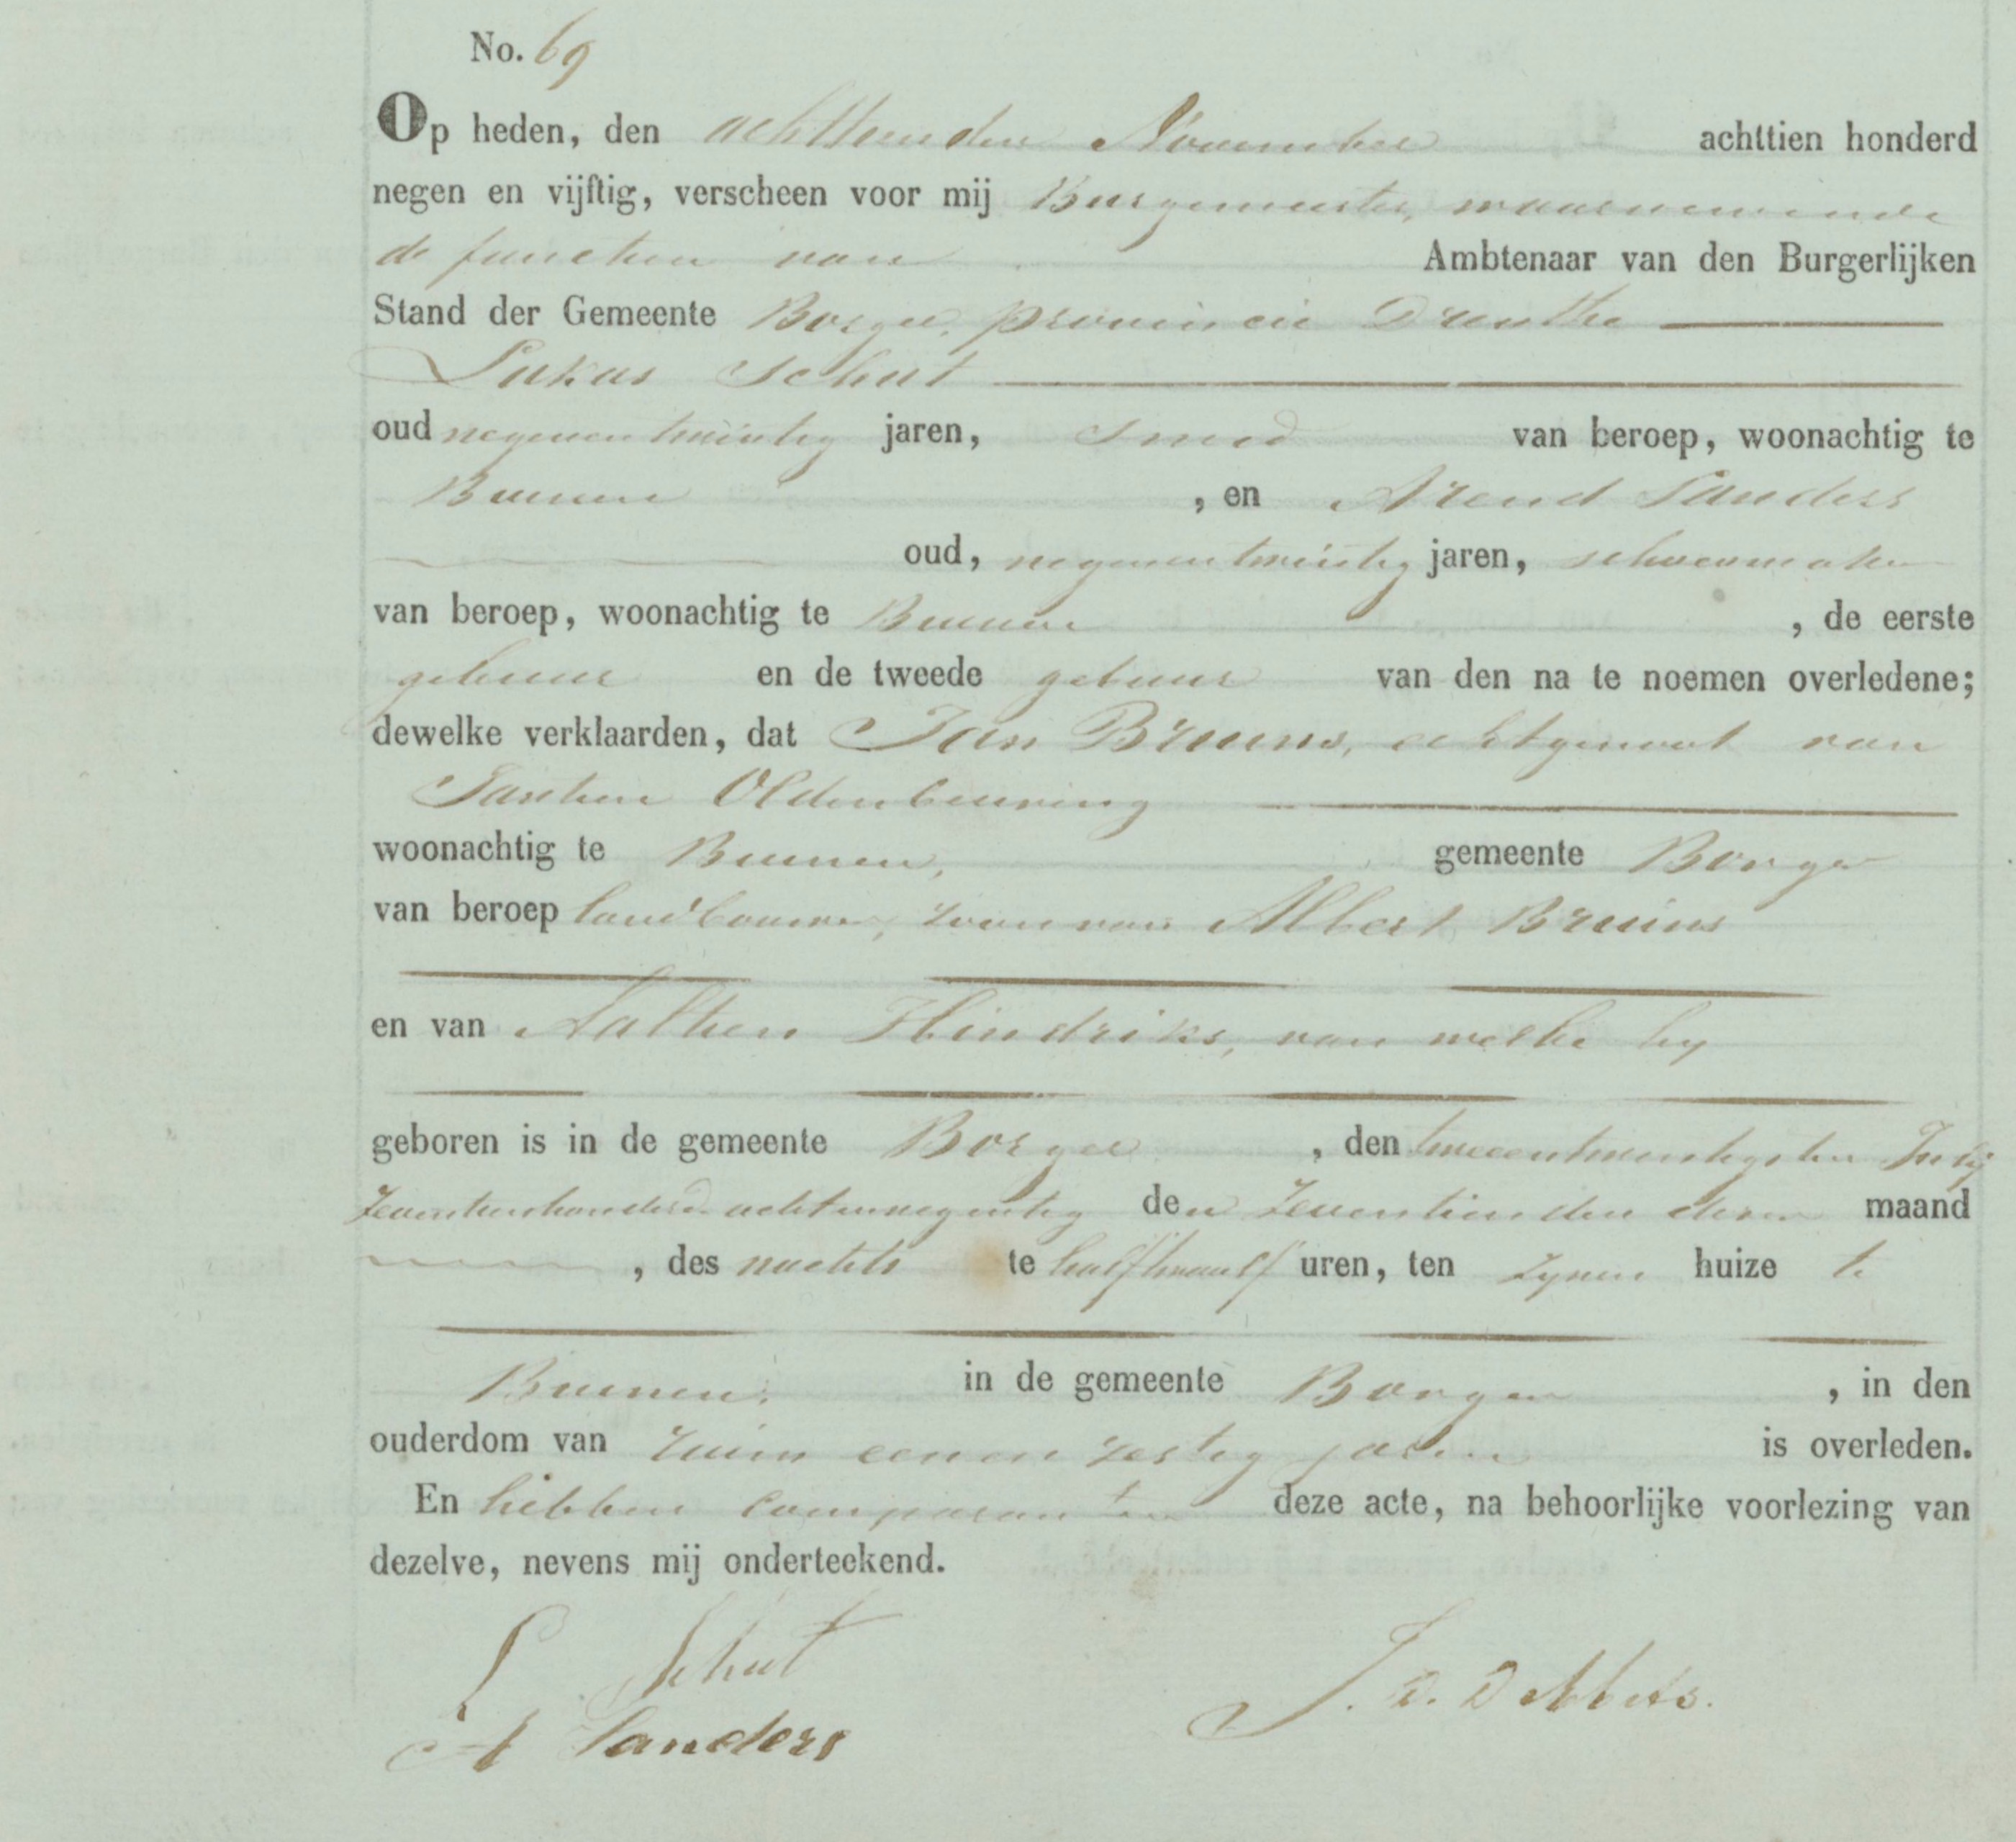 No. 69
Op heden, den achttienden November achttien honderd
negen en vijftig, verscheen voor mij Burgemeester, waarnemende
de functien van Ambtenaar van den Burgerlijken
Stand der Gemeente Borger, provincie Drenthe
Lukas Schut
oud negenentwintig jaren, Smid van beroep, woonachtig te
Buinen , en Arend Sanders
oud, negenentwintig jaren, schoenmaker
van beroep, woonachtig te Buinen , de eerste
gebuur en de tweede gebuur van den na te noemen overledene;
dewelke verklaarden, dat Jan Bruins, echtgenoot van
Jantien Oldenbeuving
woonachtig te Buinen, gemeente Borger
van beroep landbouwer, zoon van Albert Bruins
en van Aaltien Hindriks, van welke hy
geboren is in de gemeente Borger , den tweeentwintigsten July
Zeventienhonderd achtennegentig den Zeventienden dezer maand
, des nachts te half twaalf uren, ten zynen huize te
Buinen, in de gemeente Borger , in den
ouderdom van ruim eenen zestig jaren is overleden.
En hebben comparanten deze acte, na behoorlijke voorlezing van
dezelve, nevens mij onderteekend.
L Schut
A Sanders